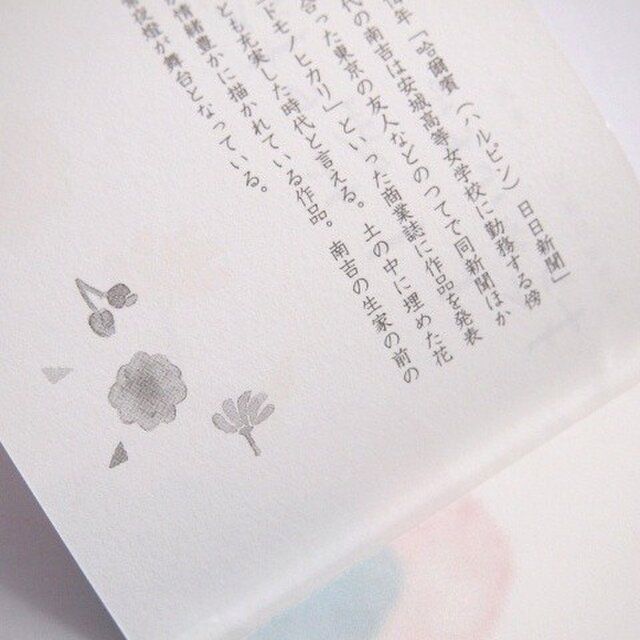 年「哈爾賓（ハルピン）日日新聞」
代の南吉は安城高等女学校に勤務する傍
合った東京の友人などのつてで同新聞ほか
ドモノヒカリ」といった商業誌に作品を発表
とも充実した時代と言える。土の中に埋めた花
情緒豊かに描かれている作品。南吉の生家の前の
が舞台となっている。